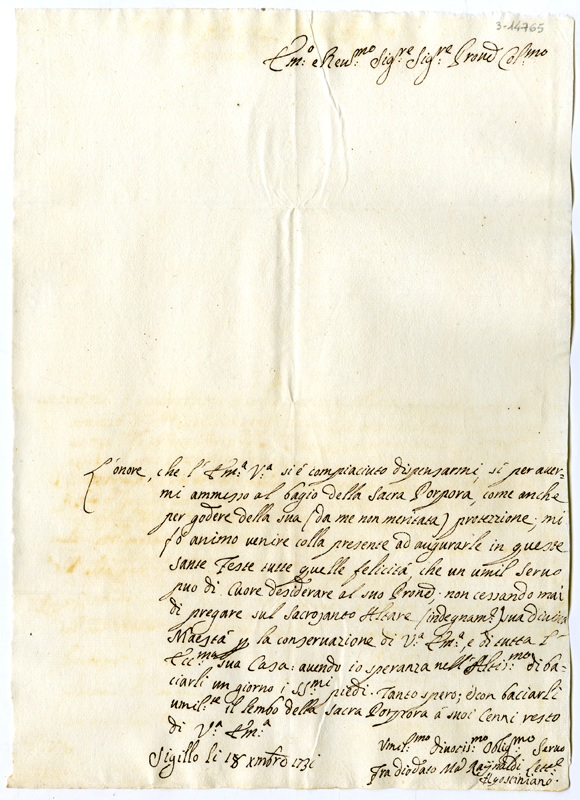 3-14765
Em:o e Reu:mo Sig:re Sig:re Prone Col:mo
L'onore, che l'Em:a V:a si è compiaciuto dispensarmi, si per auer=
mi ammesso al bagio della Sacra Porpora, come anche
per godere della sua (da me non meritata) protezione; mi
fò animo venire colla presente ad augurarle in queste
sante Feste tutte quelle felicità che un umil servo
puo di Cuore desiderare al suo Prone: non cessando mai
di pregare sul Sacrosanto Altare (indegnam:e) sua Divina
Maestà p la conservazione di V:a Em:a, e di tutta l'
Ecc:ma sua Casa: auendo io speranza nell'Altis:mo di ba-
ciarli un giorno i SS:mi piedi. Tanto spero; e con baciarli
umil:te il lembo della Sacra Porpora à suoi Cenni resto
di V:a Em:a
Sigillo li 18 xmbro 1731
Vmil:mo divotis:mo Oblig:mo Servo
Fra diodato M:a Raynaldi Lett:e
Agostiniano